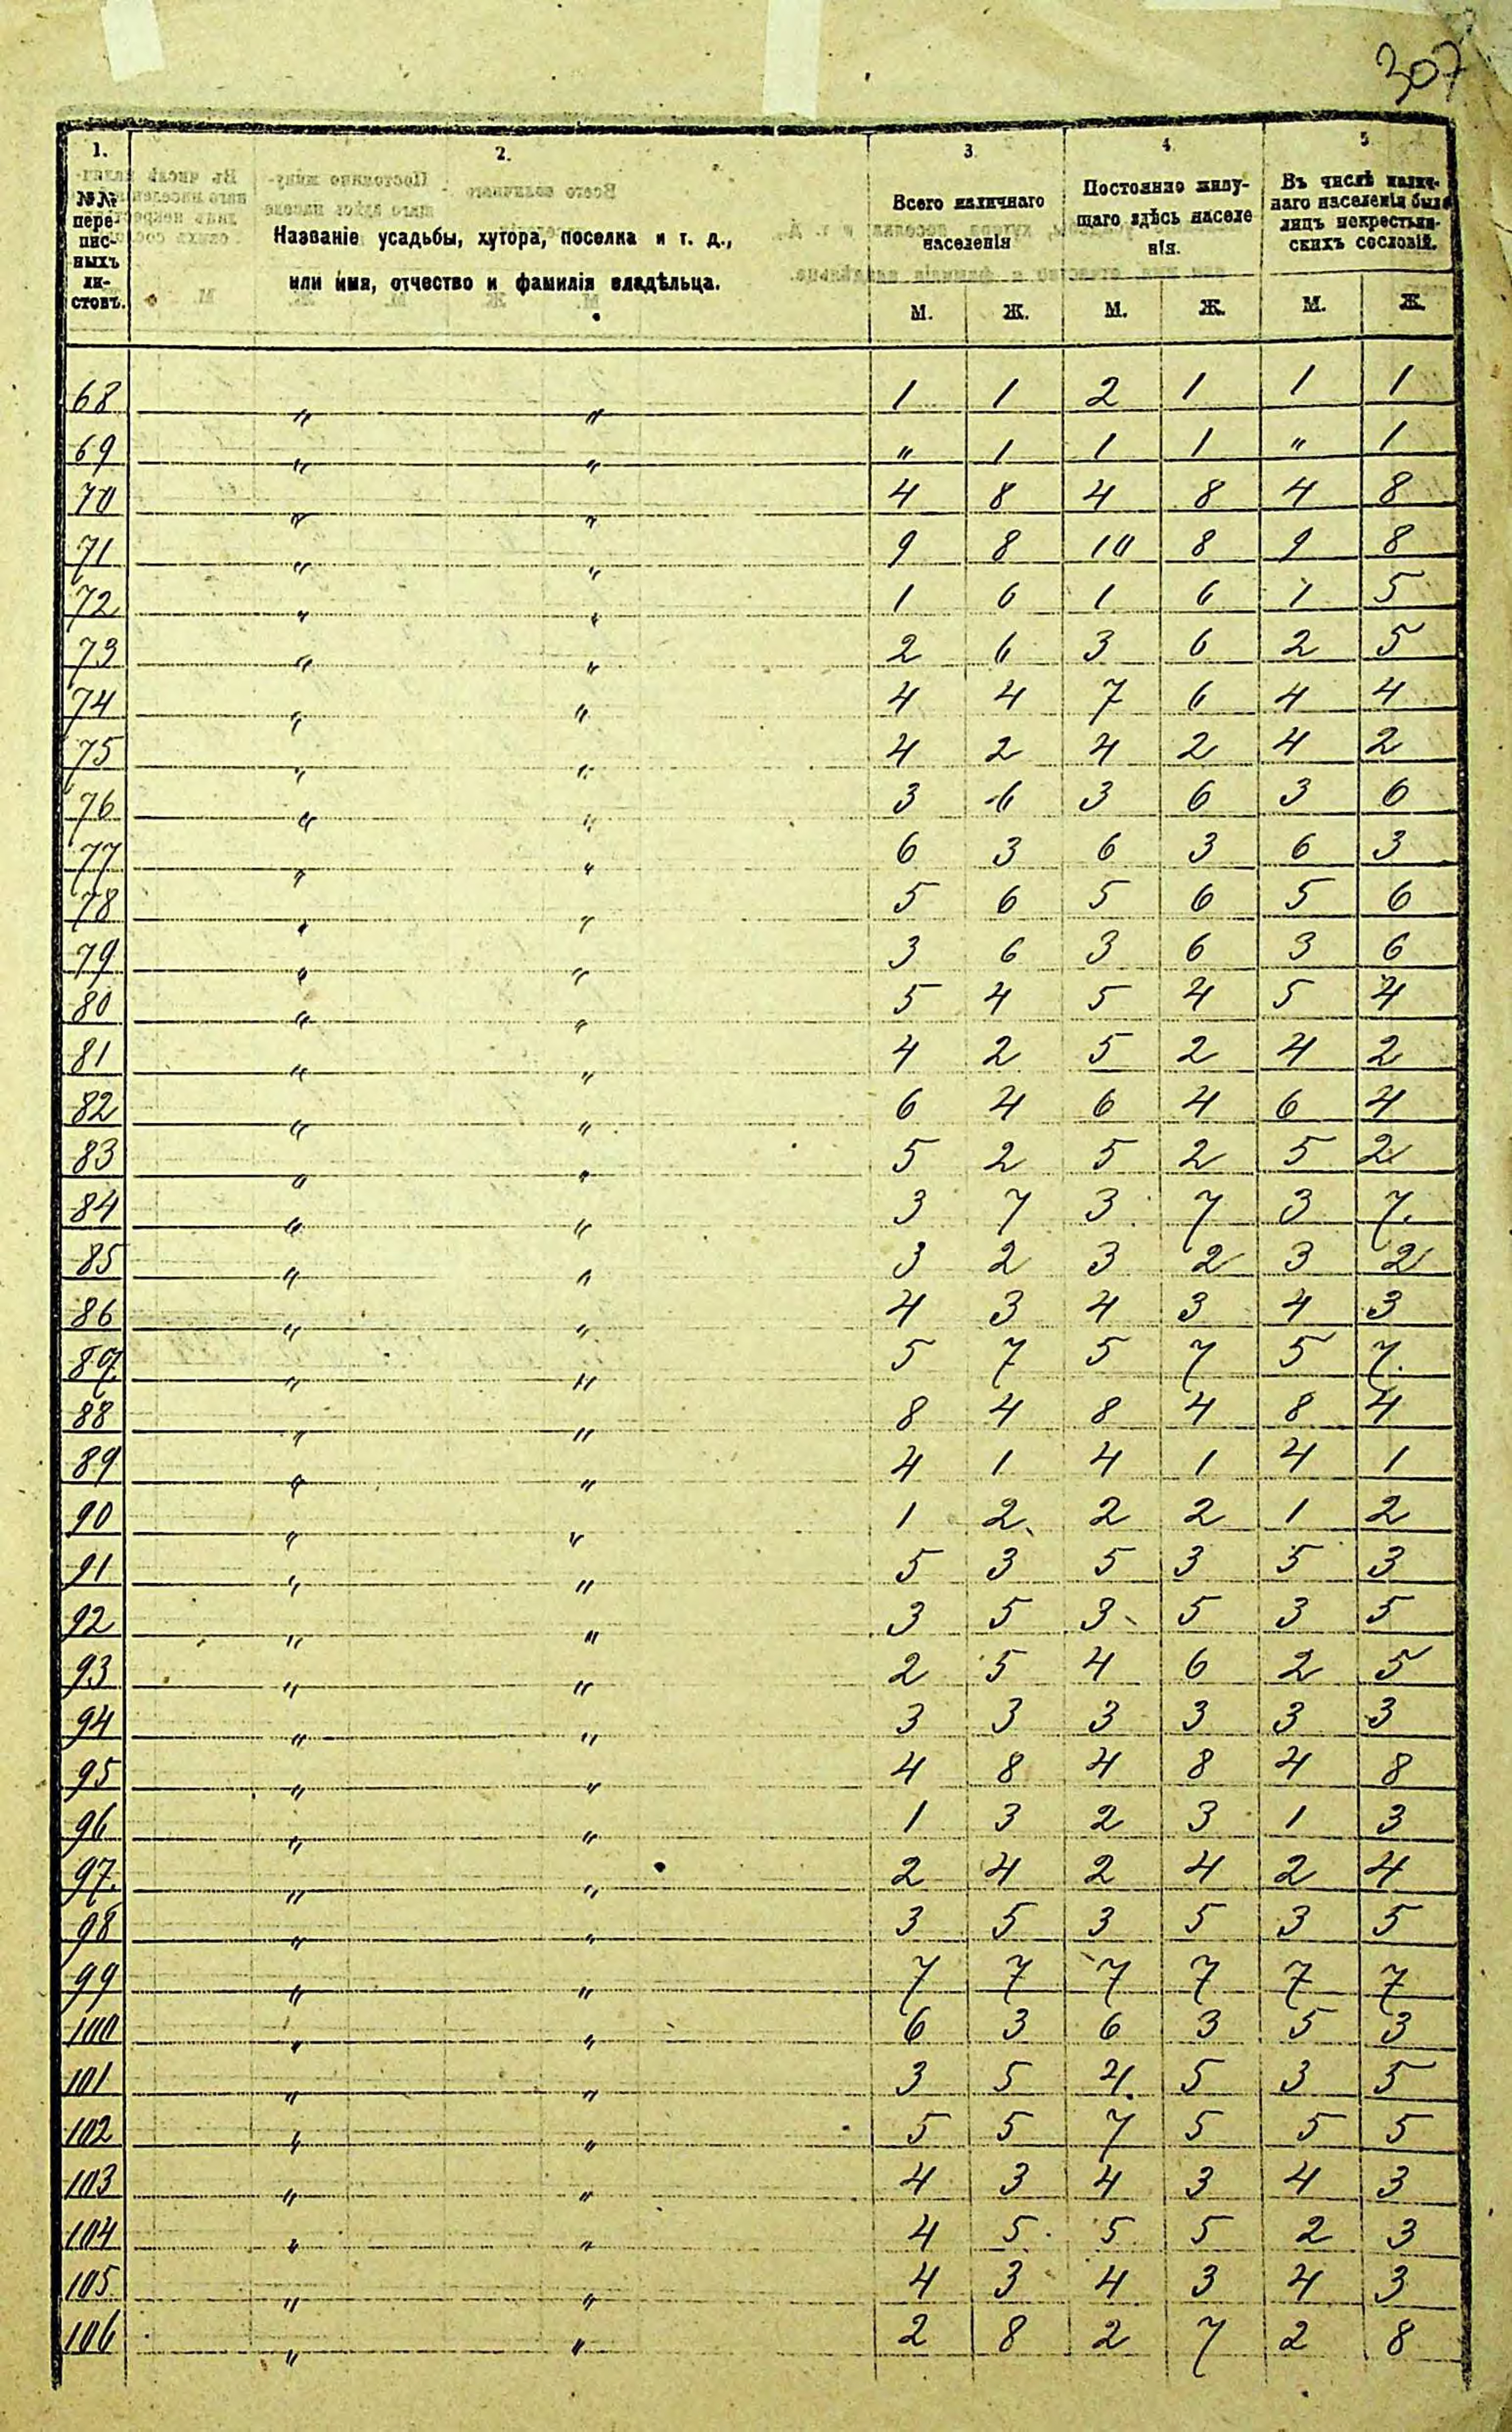 307
1. 2. 3 4 5
№№ пере- пис- ныхъ ли- стовъ.
Названіе усадьбы, хутора, поселка и т. д.,
или имя, отчество и фамилія владѣльца.
Всего наличнаго
населенія
Постоянно живу-
щаго здѣсь населе
нія.
Въ числѣ налич-
наго населенія было
лицъ некрестьян-
скихъ сословій.
М. Ж. М. Ж. М. Ж.
68 " " 1 1 2 1 1 1
69 " " " 1 1 1 " 1
70 " " 4 8 4 8 4 8
71 " " 9 8 10 8 9 8
72 " " 1 6 1 6 1 5
73 " " 2 6 3 6 2 5
74 " " 4 4 7 6 4 4
75 " " 4 2 4 2 4 2
76 " " 3 6 3 6 3 6
77 " " 6 3 6 3 6 3
78 " " 5 6 5 6 5 6
79 " " 3 6 3 6 3 6
80 " " 5 4 5 4 5 4
81 " " 4 2 5 2 4 2
82 " " 6 4 6 4 6 4
83 " " 5 2 5 2 5 2
84 " " 3 7 3 7 3 7
85 " " 3 2 3 2 3 2
86 " " 4 3 4 3 4 3
87 " " 5 7 5 7 5 7
88 " " 8 4 8 4 8 4
89 " " 4 1 4 1 4 1
90 " " 1 2 2 2 1 2
91 " " 5 3 5 3 5 3
92 " " 3 5 3 5 3 5
93 " " 2 5 4 6 2 5
94 " " 3 3 3 3 3 3
95 " " 4 8 4 8 4 8
96 " " 1 3 2 3 1 3
97 " " 2 4 2 4 2 4
98 " " 3 5 3 5 3 5
99 " " 7 7 7 7 7 7
100 " " 6 3 6 3 5 3
101 " " 3 5 4 5 3 5
102 " " 5 5 7 5 5 5
103 " " 4 3 4 3 4 3
104 " " 4 5 5 5 2 3
105 " " 4 3 4 3 4 3
106 " " 2 8 2 7 2 8